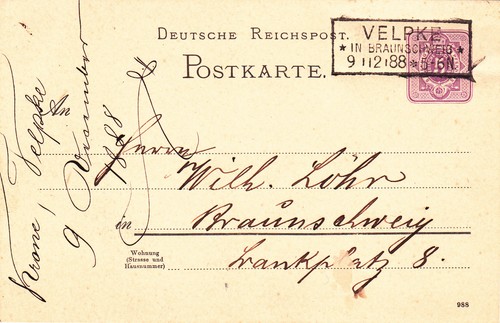 DEUTSCHE REICHSPOST.
POSTKARTE.
VELPKE
* IN BRAUNSCHWEIG *
9 12 88 * 5-6N.
An
Herrn
Wilh. Löhr
in Braunschweig
Wohnung
(Strasse und
Hausnummer)
Bankplatz 8.
988
Velpke
9 Dezember
1888